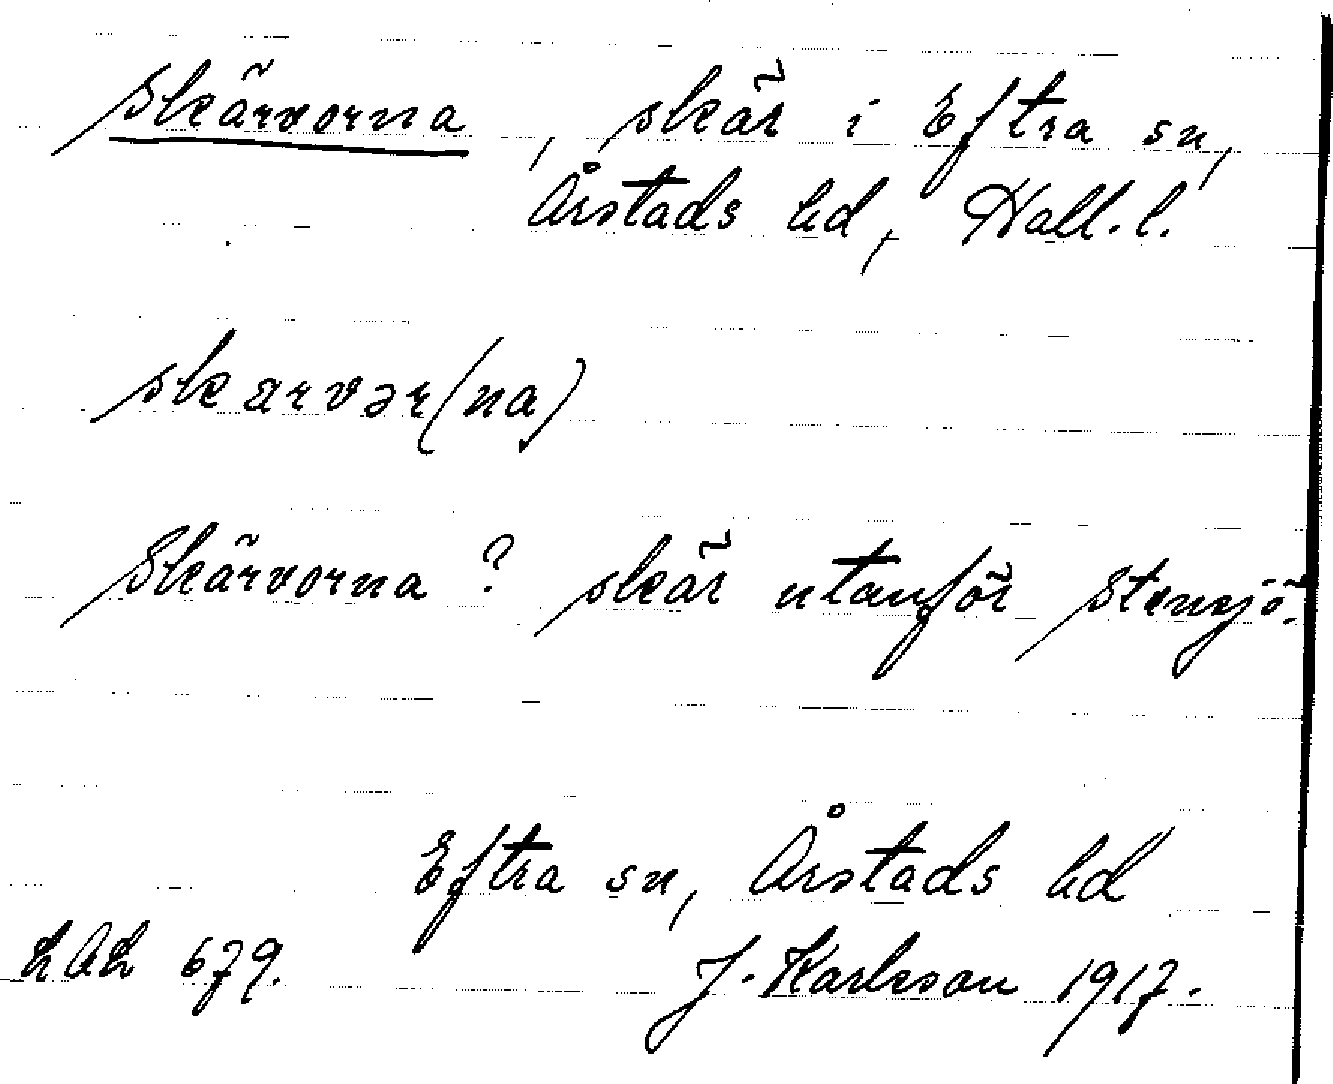 Skärvorna, skär i Eftra sn,
Årstads hd, Hall. l.
skærvər(na)
Skärvorna? skär utanför Stensjö.
Eftra sn, Årstads hd
679. J. Karlsson 1917.